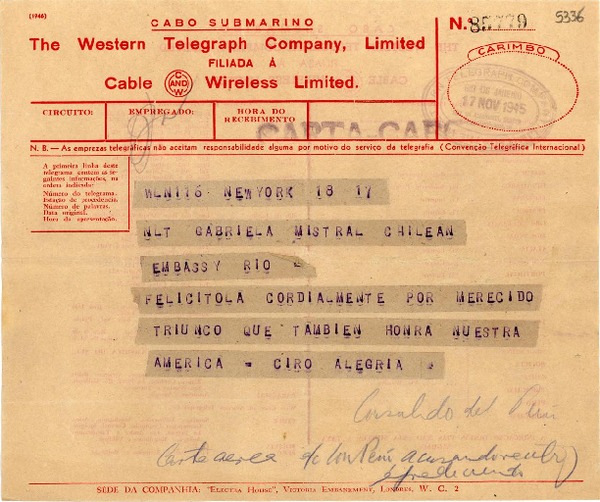 (1946)
CABO SUBMARINO
The Western Telegraph Company, Limited
FILIADA Á
Cable AND Wireless Limited.
N. 85779
5336
CARIMBO
17 NOV 1945
CIRCUITO:
EMPREGADO:
HORA DO RECEBIMENTO
CARTA-CABO
N. B. — As emprezas telegráficas não aceitam responsabilidade alguma por motivo do serviço da telegrafia (Convenção Telegráfica Internacional)
A primeira linha deste
telegrama contém as se-
guintes informações, na
ordem indicada:
Número do telegrama.
Estação de procedência.
Número de palavras.
Data original.
Hora da apresentação.
WLN116 NEWYORK 18 17
NLT GABRIELA MISTRAL CHILEAN
EMBASSY RIO =
FELICITOLA CORDIALMENTE POR MERECIDO
TRIUNCO QUE TAMBIEN HONRA NUESTRA
AMERICA = CIRO ALEGRIA =
Consulado del Peru
Carta aerea
SÉDE DA COMPANHIA: "ELECTRA HOUSE", VICTORIA EMBANKMENT, LONDRES, W. C. 2